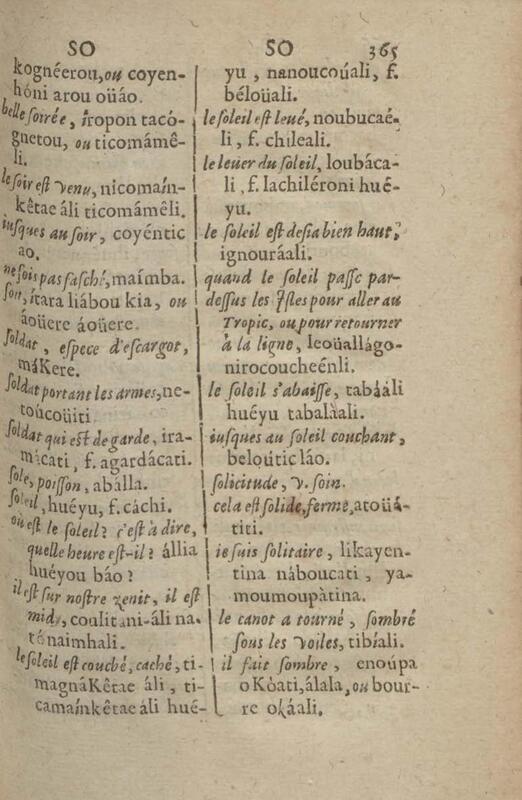 SO
SO 365
kognéerou, ou coyen-
hóni arou oüáo.
belle soirée, iropon tacó-
gnetou, ou ticomámê-
li.
le soir est venu, nicomaín-
kêtae áli ticomámêli.
iusques au soir, coyéntic
ao.
ne sois pas fasché, maímba.
soit, ítara liábou kia, ou
áoüere áoüere.
soldat, espece d'escargot,
máKere.
soldat portant les armes, ne-
toúcoüiti
soldat qui est de garde, ira-
mácati, f. agardácati.
sole, poisson, abálla.
soleil, huéyu, f. cáchi.
où est le soleil? c'est à dire,
quelle heure est-il? állia
huéyou báo?
il est sur nostre zenit, il est
midy, coulitani-áli na-
tónaimhali.
le soleil est couché, caché, ti-
magnáKêtae áli, ti-
camaínkêtae áli hué-
yu, nanoucoúali, f.
béloüali.
le soleil est leué, noubucaé-
li, f. chileali.
le leuer du soleil, loubáca-
li, f. lachiléroni hué-
yu.
le soleil est desia bien haut,
ignouráali.
quand le soleil passe par-
dessus les Isles pour aller au
Tropic, ou pour retourner
à la ligne, leoüallágo-
nirocoucheénli.
le soleil s'abaisse, tabáali
huéyu tabalàali.
iusques au soleil couchant,
beloútic láo.
solicitude, v. soin.
cela est solide, ferme, atoüá-
titi.
ie suis solitaire, likayen-
tina náboucati, ya-
moumoupàtina.
le canot a tourné, sombré
sous les voiles, tibíali.
il fait sombre, enoúpa
oKòati, álala, ou bour-
re okáali.